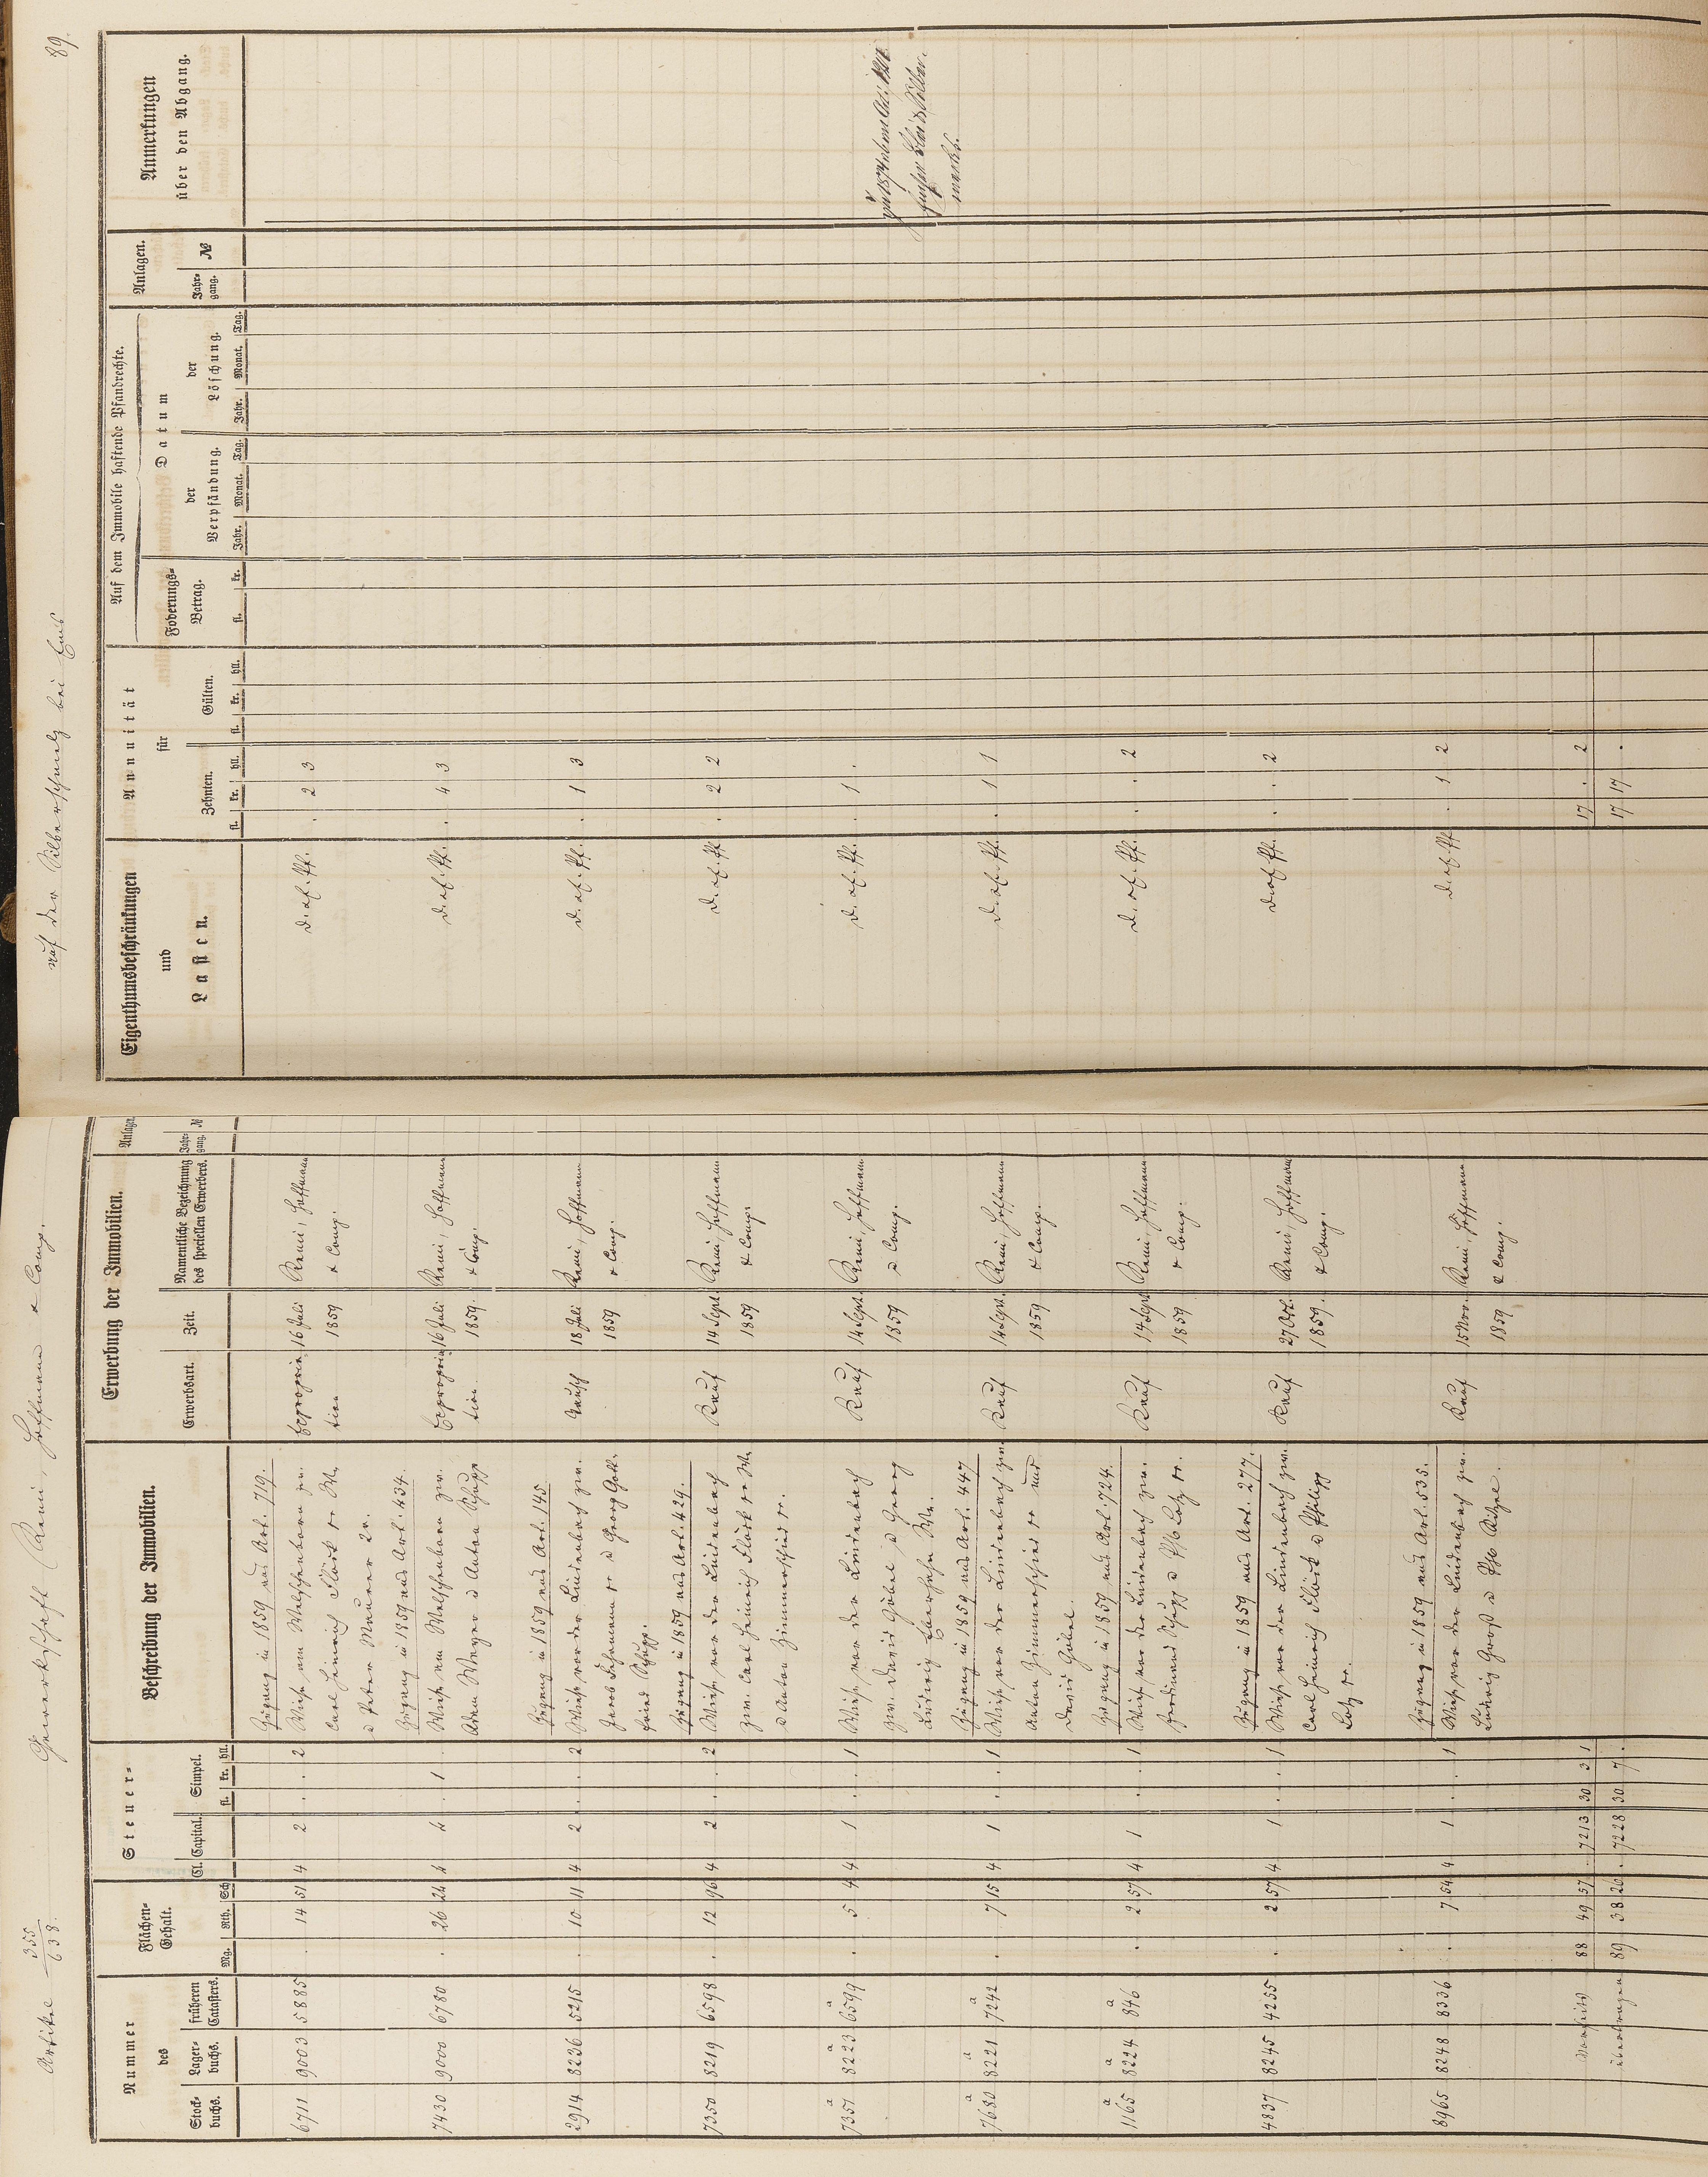 Artikel 355/638. Gewerkschaft Remi, Hoffmann & Comp.
auf der Silberschmelz bei Ems
89.
Nummer des
Stock-buchs.
Lager-buchs.
früheren Catasters.
Flächen-Gehalt.
Mg. Rth. Sch.
Steuer-
Cl. Capital. Simpel.
fl. kr. hll.
Beschreibung der Immobilien.
Erwerbung der Immobilien.
Erwerbsart.
Zeit.
Namentliche Bezeichnung des speciellen Erwerbers.
Anlagen
Jahr-gang. №
Eigenthumsbeschränkungen
und
Lasten.
Annuität
für
Zehnten. Gülten.
fl. kr. hll. fl. kr. hll.
Auf dem Immobile haftende Pfandrechte.
Foderungs-Betrag.
fl. kr.
Datum
der Verpfändung.
Jahr. Monat. Tag.
der Löschung.
Jahr. Monat. Tag.
Anlagen.
Jahr-gang. №
Anmerkungen
über den Abgang.
Zugang in 1859 aus Art. 719.
6711 9003 5885 . 14 51 4 2 . . 2 Wiese am Welschenborn zw. Expropria- 16 Juli Remi, Hoffmann d. af. Pf. . 2 3
Carl Heinrich Flöck r. W. tion 1859 & Comp.
u Peter Maurer 2r.
Zugang in 1859 aus Art. 434.
7430 9000 6780 . 26 24 4 4 . 1 . Wiese am Welschenborn zw. Expropria- 16 Juli Remi, Hoffmann d. af. Pf. . 4 3
Adam Meyer u Anton Schupp tion 1859. & Comp.
Zugang in 1859 aus Art. 145
2914 8236 5215 . 10 11 4 2 . . 2 Wiese vor der Lindenbach zw. Tausch 18 Juli Remi, Hoffmann d. af. Pf. . 1 3
Jacob Lehmann r. u Georg Gott- 1859 & Comp.
fried Schupp.
Zugang in 1859 aus Art. 429.
7350 8219 6598 . 12 96 4 2 . . 2 Wiese vor der Lindenbach Kauf 14 Sept. Remi, Hoffmann d. af. Pf. . 2 2
zw. Carl Heinrich Flöck r. W. 1859 & Comp.
u Anton Zimmerschied r.
7351 a 8223 a 6599 a . 5 4 4 1 . . 1 Wiese vor der Lindenbach Kauf 14 Sept. Remi, Hoffmann d. af. Pf. . 1 .
zw. David Göbel u Georg 1859 & Comp.
Ludwig Eberhahn We.
Zugang in 1859 aus Art. 447
7680 a 8221 a 7242 a . 7 15 4 1 . . 1 Wiese vor der Lindenbach zw. Kauf 14 Sept. Remi, Hoffmann d. af. Pf. . 1 1
Anton Zimmerschied r. und 1859 & Comp.
David Göbel.
Zugang in 1859 aus Art. 724.
1165 a 8224 a 846 a . 2 57 4 1 . . 1 Wiese vor der Lindenbach zw. Kauf 14 Sept. Remi, Hoffmann d. af. Pf. . . 2
Ferdinand Schupp u Phl Lotz r. 1859 & Comp.
Zugang in 1859 aus Art. 277.
4837 8245 4255 . 2 57 4 1 . . 1 Wiese vor der Lindenbach zw. Kauf 27 Oct. Remi, Hoffmann d. af. Pf. . . 2
Carl Heinrich Flöck u Philipp 1859. & Comp.
Lotz r.
Zugang in 1859 aus Art. 535.
8965 8248 8336 . 7 54 4 1 . . 1 Wiese vor der Lindenbach zw. Kauf 15 Nov. Remi, Hoffmann d. af. Pf. . 1 2
Ludwig Groß u Phl 1859 & Comp.
88 49 57 . 7213 30 3 1 17 . 2
übertragen 89 38 26 . 7228 30 7 . 17 17 .